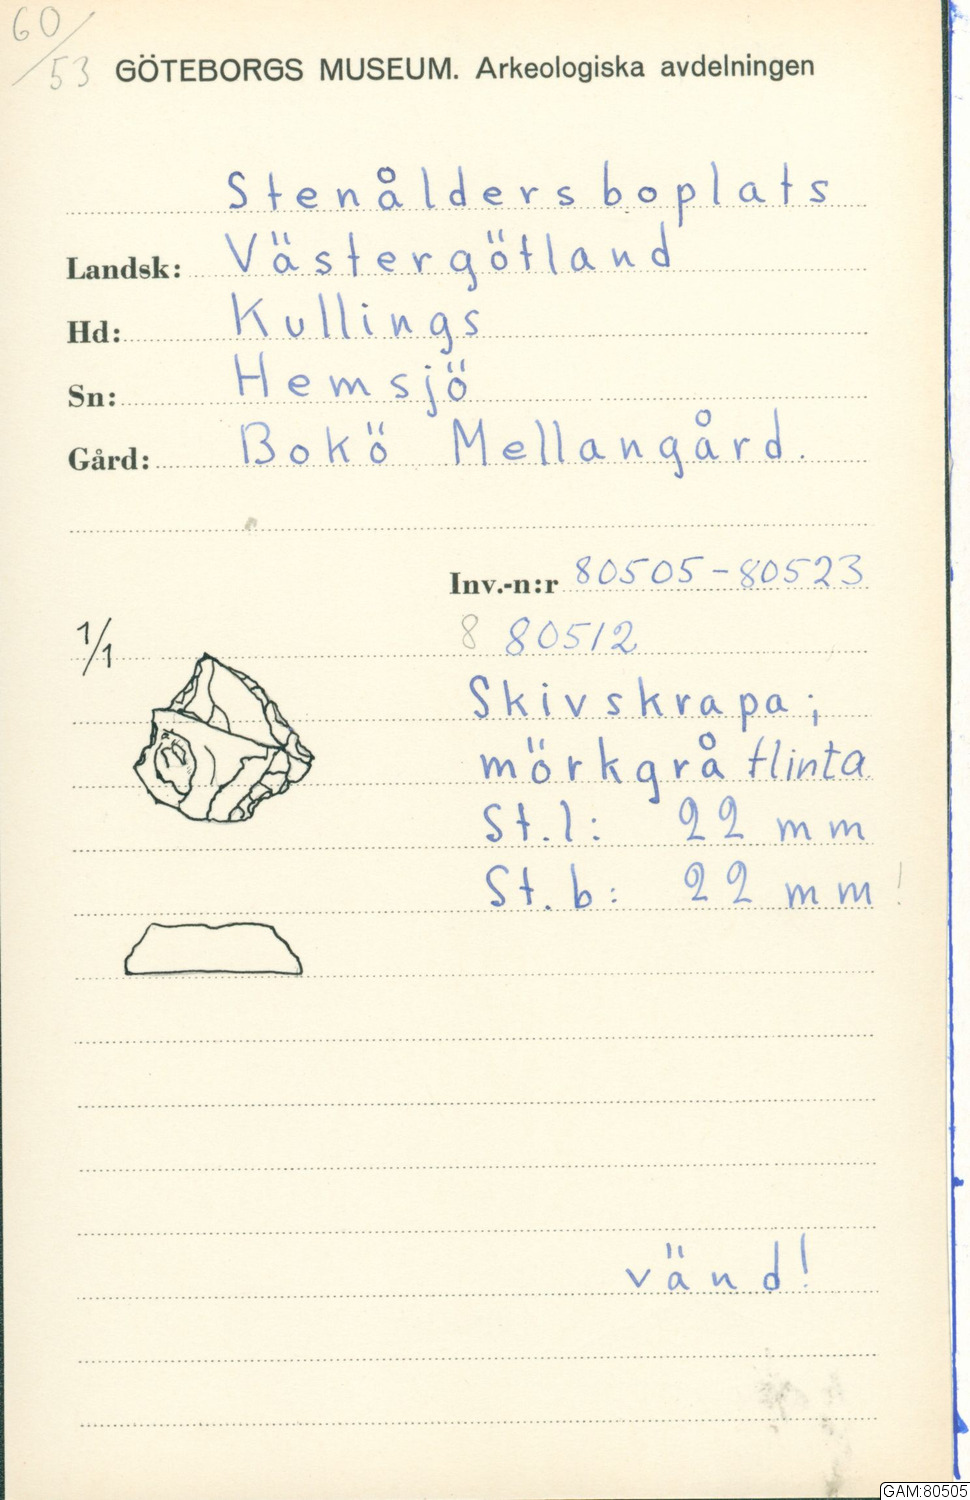 60/53
GÖTEBORGS MUSEUM. Arkeologiska avdelningen
Stenåldersboplats
Landsk: Västergötland
Hd: Kullings
Sn: Hemsjö
Gård: Bokö Mellangård.
Inv.-n:r 80505-80523
1/1
8 80512
Skivskrapa;
mörkgrå flinta
St.l: 22 mm
St.b: 22 mm !
vänd!
GAM:80505